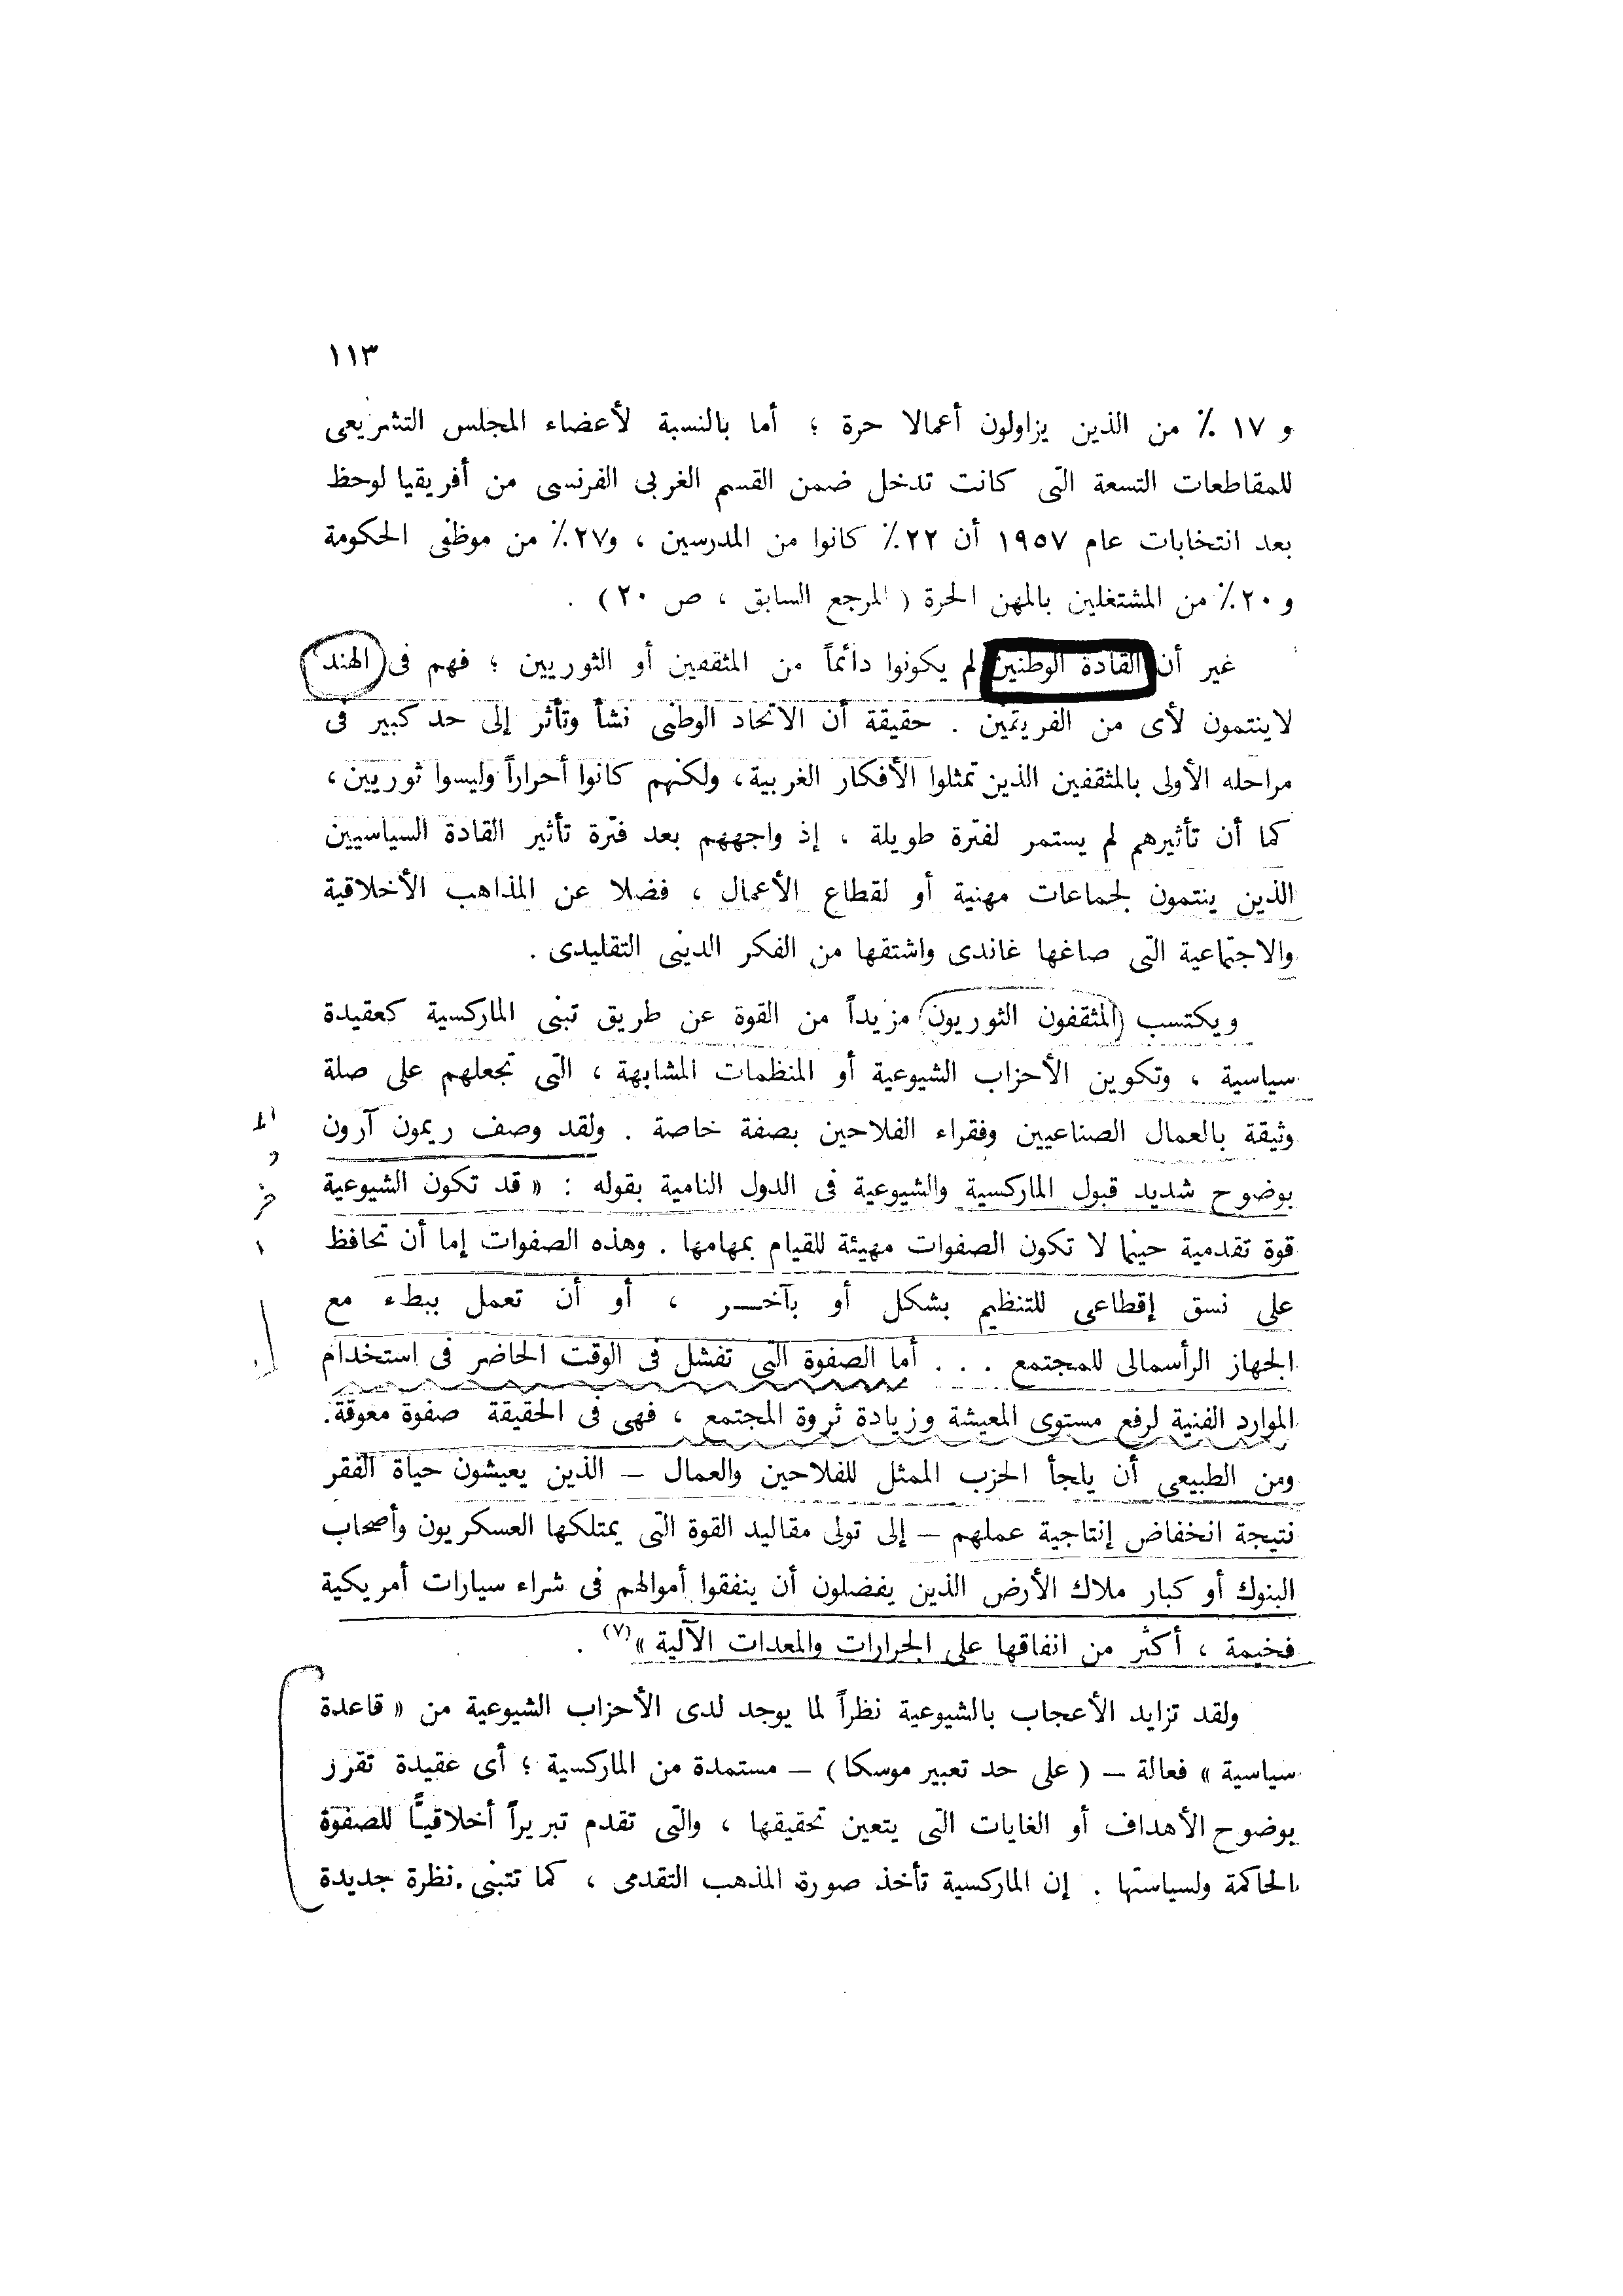 ١١٣
و ١٧ ٪ من الذين يزاولون أعمالا حرة ؛ أما بالنسبة لأعضاء المجلس التشريعى
للمقاطعات التسعة التى كانت تدخل ضمن القسم الغربى الفرنسى من أفريقيا لوحظ
بعد انتخابات عام ١٩٥٧ أن ٢٢٪ كانوا من المدرسين ، و٢٧٪ من موظفى الحكومة
و ٢٠٪ من المشتغلين بالمهن الحرة ( المرجع السابق ، ص ٢٠ ) .
غير أن القادة الوطنين لم يكونوا دائماً من المثقفين أو الثوريين ؛ فهم فى الهند
لاينتمون لأى من الفريقين . حقيقة أن الاتحاد الوطنى نشأ وتأثر إلى حد كبير فى
مراحله الأولى بالمثقفين الذين تمثلوا الأفكار الغربية ، ولكنهم كانوا أحراراً وليسوا ثوريين ،
كما أن تأثيرهم لم يستمر لفترة طويلة ، إذ واجههم بعد فترة تأثير القادة السياسيين
الذين ينتمون لجماعات مهنية أو لقطاع الأعمال ، فضلا عن المذاهب الأخلاقية
والاجتماعية التى صاغها غاندى واشتقها من الفكر الدينى التقليدى .
ويكتسب المثقفون الثوريون مزيداً من القوة عن طريق تبنى الماركسية كعقيدة
سياسية ، وتكوين الأحزاب الشيوعية أو المنظمات المشابهة ، التى تجعلهم على صلة
وثيقة بالعمال الصناعيين وفقراء الفلاحين بصفة خاصة . ولقد وصف ريمون آرون
بوضوح شديد قبول الماركسية والشيوعية فى الدول النامية بقوله : « قد تكون الشيوعية
قوة تقدمية حينما لا تكون الصفوات مهيئة للقيام بمهامها . وهذه الصفوات إما أن تحافظ
على نسق إقطاعى للتنظيم بشكل أو بآخـــر ، أو أن تعمل ببطء مع
الجهاز الرأسمالى للمجتمع . . . أما الصفوة التى تفشل فى الوقت الحاضر فى استخدام
الموارد الفنية لرفع مستوى المعيشة وزيادة ثروة المجتمع ، فهى فى الحقيقة صفوة معوقة .
ومن الطبيعى أن يلجأ الحزب الممثل للفلاحين والعمال – الذين يعيشون حياة الفقر
نتيجة انخفاض إنتاجية عملهم – إلى تولى مقاليد القوة التى يمتلكها العسكريون وأصحاب
البنوك أو كبار ملاك الأرض الذين يفضلون أن ينفقوا أموالهم فى شراء سيارات أمريكية
فخيمة ، أكثر من انفاقها على الجرارات والمعدات الآلية »(٧) .
ولقد تزايد الأعجاب بالشيوعية نظراً لما يوجد لدى الأحزاب الشيوعية من « قاعدة
سياسية » فعالة – ( على حد تعبير موسكا ) – مستمدة من الماركسية ؛ أى عقيدة تقرر
بوضوح الأهداف أو الغايات التى يتعين تحقيقها ، والتى تقدم تبريراً أخلاقيـًا للصفوة
الحاكمة ولسياستها . إن الماركسية تأخذ صورة المذهب التقدمى ، كما تتبنى نظرة جديدة